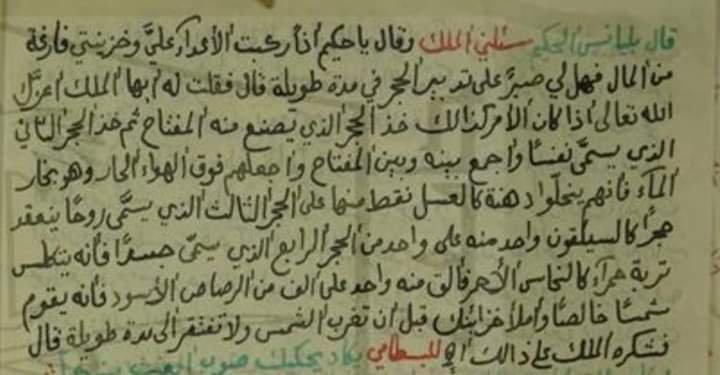 قال بليانس الحكيم سئلني الملك وقال يا حكيم اذا ركبت الأعداء عليَّ وخزينتي فارغة
من المال فهل لي صبرًا على تدبير الحجر في مدة طويلة قال فقلت له ايها الملك اعزك
الله تعالى اذا كان الأمر كذالك خذ الحجر الذي يصنع منه المفتاح ثم خذ الحجر الثاني
الذي يسمَّى نفسًا واجمع بينه وبين المفتاح واجعلهم فوق الهواء الحار وهو بخار
المآء فانهم ينحلّوا دهنة كالعسل نقط منها على الحجر الثالث الذي يسمَّى روحًا ينعقد
حجرًا كالسيلقون واحد منه على واحد من الحجر الرابع الذي يسمّى جسدًا فانه يتكلس
تربة حمرآء كالنحاس الأحمر فالق منه واحد على الف من الرصاص الأسود فانه يقوم
شمسًا خالصًا واملأ خزاينك قبل ان تغرب الشمس ولا تفتقر الى مدة طويلة قال
فشكره الملك على ذالك اﻫ للبسطامي يكاد يحكيك صوب الغيث